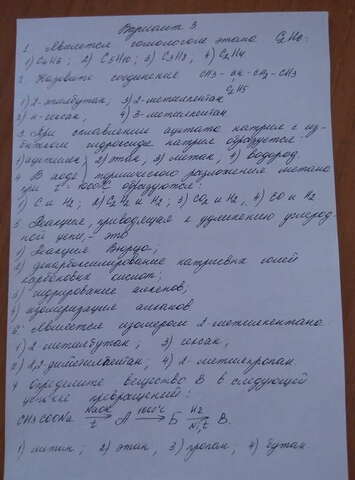 Вариант 3.
1. Является гомологом этана C2H6:
1) C6H6; 2) C5H10; 3) C3H8; 4) C2H4
2. Назовите соединение CH3 - CH - CH2 - CH3
C2H5
1) 2-этилбутан, 3) 2-метилпентан
2) н-гексан, 4) 3-метилпентан
3. При сплавлении ацетата натрия с из-
бытком гидроксида натрия образуется:
1) ацетилен 2) этан, 3) метан, 4) водород.
4. В ходе термического разложения метана
при t = 1000°C образуются:
1) C и H2; 2) C2H2 и H2; 3) CO2 и H2, 4) CO и H2
5. Реакция, приводящая к удлинению углерод
ной цепи, - это
1) Реакция Вюрца;
2) декарбоксилирование натриевых солей
карбоновых кислот;
3) гидрирование алкенов,
4) изомеризация алканов.
6. Является изомером 2-метилпентана:
1) 2-метилбутан; 3) гексан,
2) 2,2-диметилпентан; 4) 2-метилпропан.
7. Определите вещество В в следующей
превращений:
CH3COONa NaOH t А 1000°C Б H2 Ni,t В.
1) метан; 2) этан, 3) пропан, 4) бутан.